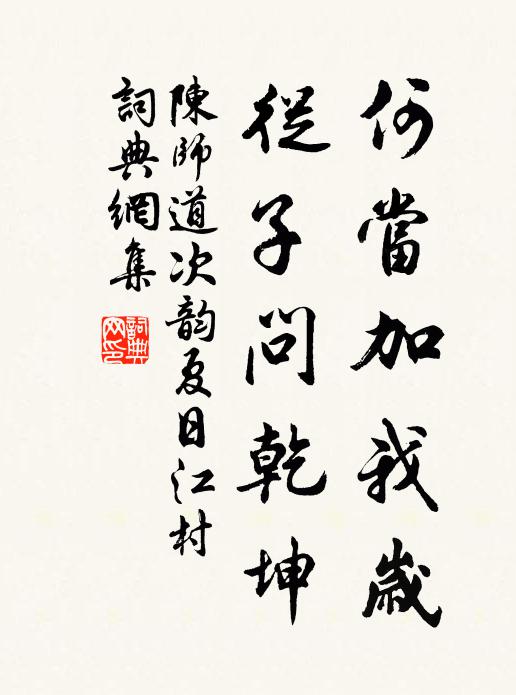 何當加我歲
從子問乾坤
陳師道次韵夏日江村
詞典網集
詞典
网印